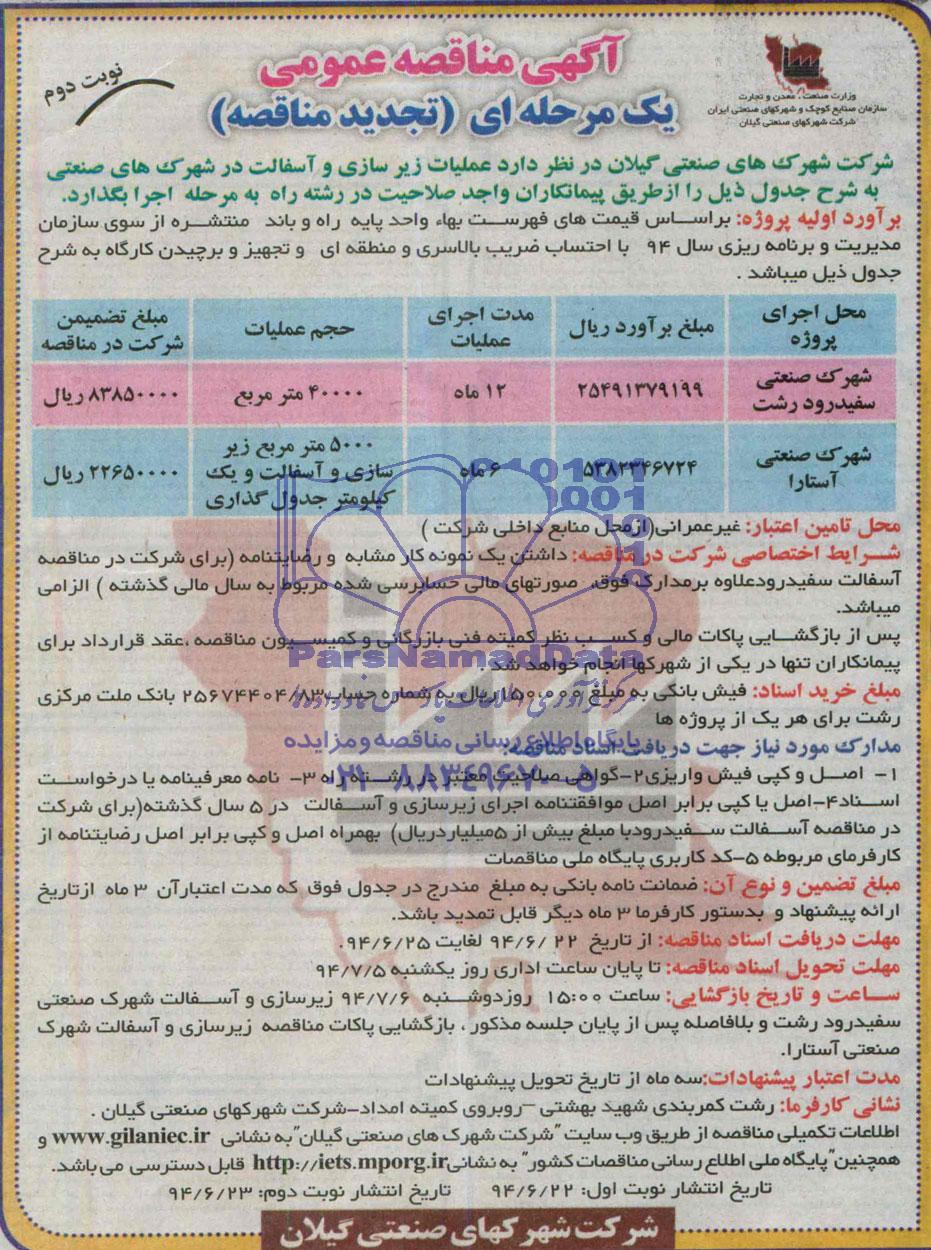 آگهی مناقصه عمومی
یک مرحله ای (تجدید مناقصه)
نوبت دوم
وزارت صنعت، معدن و تجارت
سازمان صنایع کوچک و شهرکهای صنعتی ایران
شرکت شهرکهای صنعتی گیلان
شرکت شهرک های صنعتی گیلان در نظر دارد عملیات زیر سازی و آسفالت در شهرک های صنعتی
به شرح جدول ذیل را ازطریق پیمانکاران واجد صلاحیت در رشته راه به مرحله اجرا بگذارد.
برآورد اولیه پروژه: براساس قیمت های فهرست بهاء واحد پایه راه و باند منتشره از سوی سازمان
مدیریت و برنامه ریزی سال ۹۴ با احتساب ضریب بالاسری و منطقه ای و تجهیز و برچیدن کارگاه به شرح
جدول ذیل میباشد .
محل اجرای پروژه | مبلغ برآورد ریال | مدت اجرای عملیات | حجم عملیات | مبلغ تضمیمن شرکت در مناقصه
شهرک صنعتی سفیدرود رشت | ۲۵۴۹۱۳۷۹۱۹۹ | ۱۲ ماه | ۴۰۰۰۰ متر مربع | ۸۳۸۵۰۰۰۰ ریال
شهرک صنعتی آستارا | ۵۳۸۲۳۴۶۷۲۴ | ۶ ماه | ۵۰۰۰ متر مربع زیر سازی و آسفالت و یک کیلومتر جدول گذاری | ۲۲۶۵۰۰۰۰ ریال
محل تامین اعتبار: غیرعمرانی(ازمحل منابع داخلی شرکت )
شرایط اختصاصی شرکت در مناقصه: داشتن یک نمونه کار مشابه و رضایتنامه (برای شرکت در مناقصه
آسفالت سفیدرودعلاوه برمدارک فوق، صورتهای مالی حسابرسی شده مربوط به سال مالی گذشته ) الزامی
میباشد.
پس از بازگشایی پاکات مالی و کسب نظر کمیته فنی بازرگانی و کمیسیون مناقصه ،عقد قرارداد برای
پیمانکاران تنها در یکی از شهرکها انجام خواهد شد .
مبلغ خرید اسناد: فیش بانکی به مبلغ ۱۵۰,۰۰۰ریال به شماره حساب ۲۵۶۷۴۴۰۴/۸۳ بانک ملت مرکزی
رشت برای هر یک از پروژه ها
مدارک مورد نیاز جهت دریافت اسناد مناقصه:
۱- اصل و کپی فیش واریزی۲-گواهی صلاحیت معتبر در رشته راه ۳- نامه معرفینامه یا درخواست
اسناد۴-اصل یا کپی برابر اصل موافقتنامه اجرای زیرسازی و آسفالت در ۵ سال گذشته(برای شرکت
در مناقصه آسفالت سفیدرودبا مبلغ بیش از ۵میلیاردریال) بهمراه اصل و کپی برابر اصل رضایتنامه از
کارفرمای مربوطه ۵-کد کاربری پایگاه ملی مناقصات
مبلغ تضمین و نوع آن: ضمانت نامه بانکی به مبلغ مندرج در جدول فوق که مدت اعتبارآن ۳ ماه ازتاریخ
ارائه پیشنهاد و بدستور کارفرما ۳ ماه دیگر قابل تمدید باشد.
مهلت دریافت اسناد مناقصه: از تاریخ ۹۴/۶/۲۲ لغایت ۹۴/۶/۲۵.
مهلت تحویل اسناد مناقصه: تا پایان ساعت اداری روز یکشنبه ۹۴/۷/۵
ساعت و تاریخ بازگشایی: ساعت ۱۵:۰۰ روزدوشنبه ۹۴/۷/۶ زیرسازی و آسفالت شهرک صنعتی
سفیدرود رشت و بلافاصله پس از پایان جلسه مذکور ، بازگشایی پاکات مناقصه زیرسازی و آسفالت شهرک
صنعتی آستارا.
مدت اعتبار پیشنهادات:سه ماه از تاریخ تحویل پیشنهادات
نشانی کارفرما: رشت کمربندی شهید بهشتی -روبروی کمیته امداد-شرکت شهرکهای صنعتی گیلان .
اطلاعات تکمیلی مناقصه از طریق وب سایت "شرکت شهرک های صنعتی گیلان"به نشانی www.gilaniec.ir و
همچنین"پایگاه ملی اطلاع رسانی مناقصات کشور" به نشانیhttp://iets.mporg.ir قابل دسترسی می باشد.
تاریخ انتشار نوبت اول: ۹۴/۶/۲۲ تاریخ انتشار نوبت دوم: ۹۴/۶/۲۳
شرکت شهرکهای صنعتی گیلان
ParsNamadData
پایگاه اطلاع رسانی مناقصه و مزایده
۰۲۱-۸۸۳۴۹۶۷۰-۵